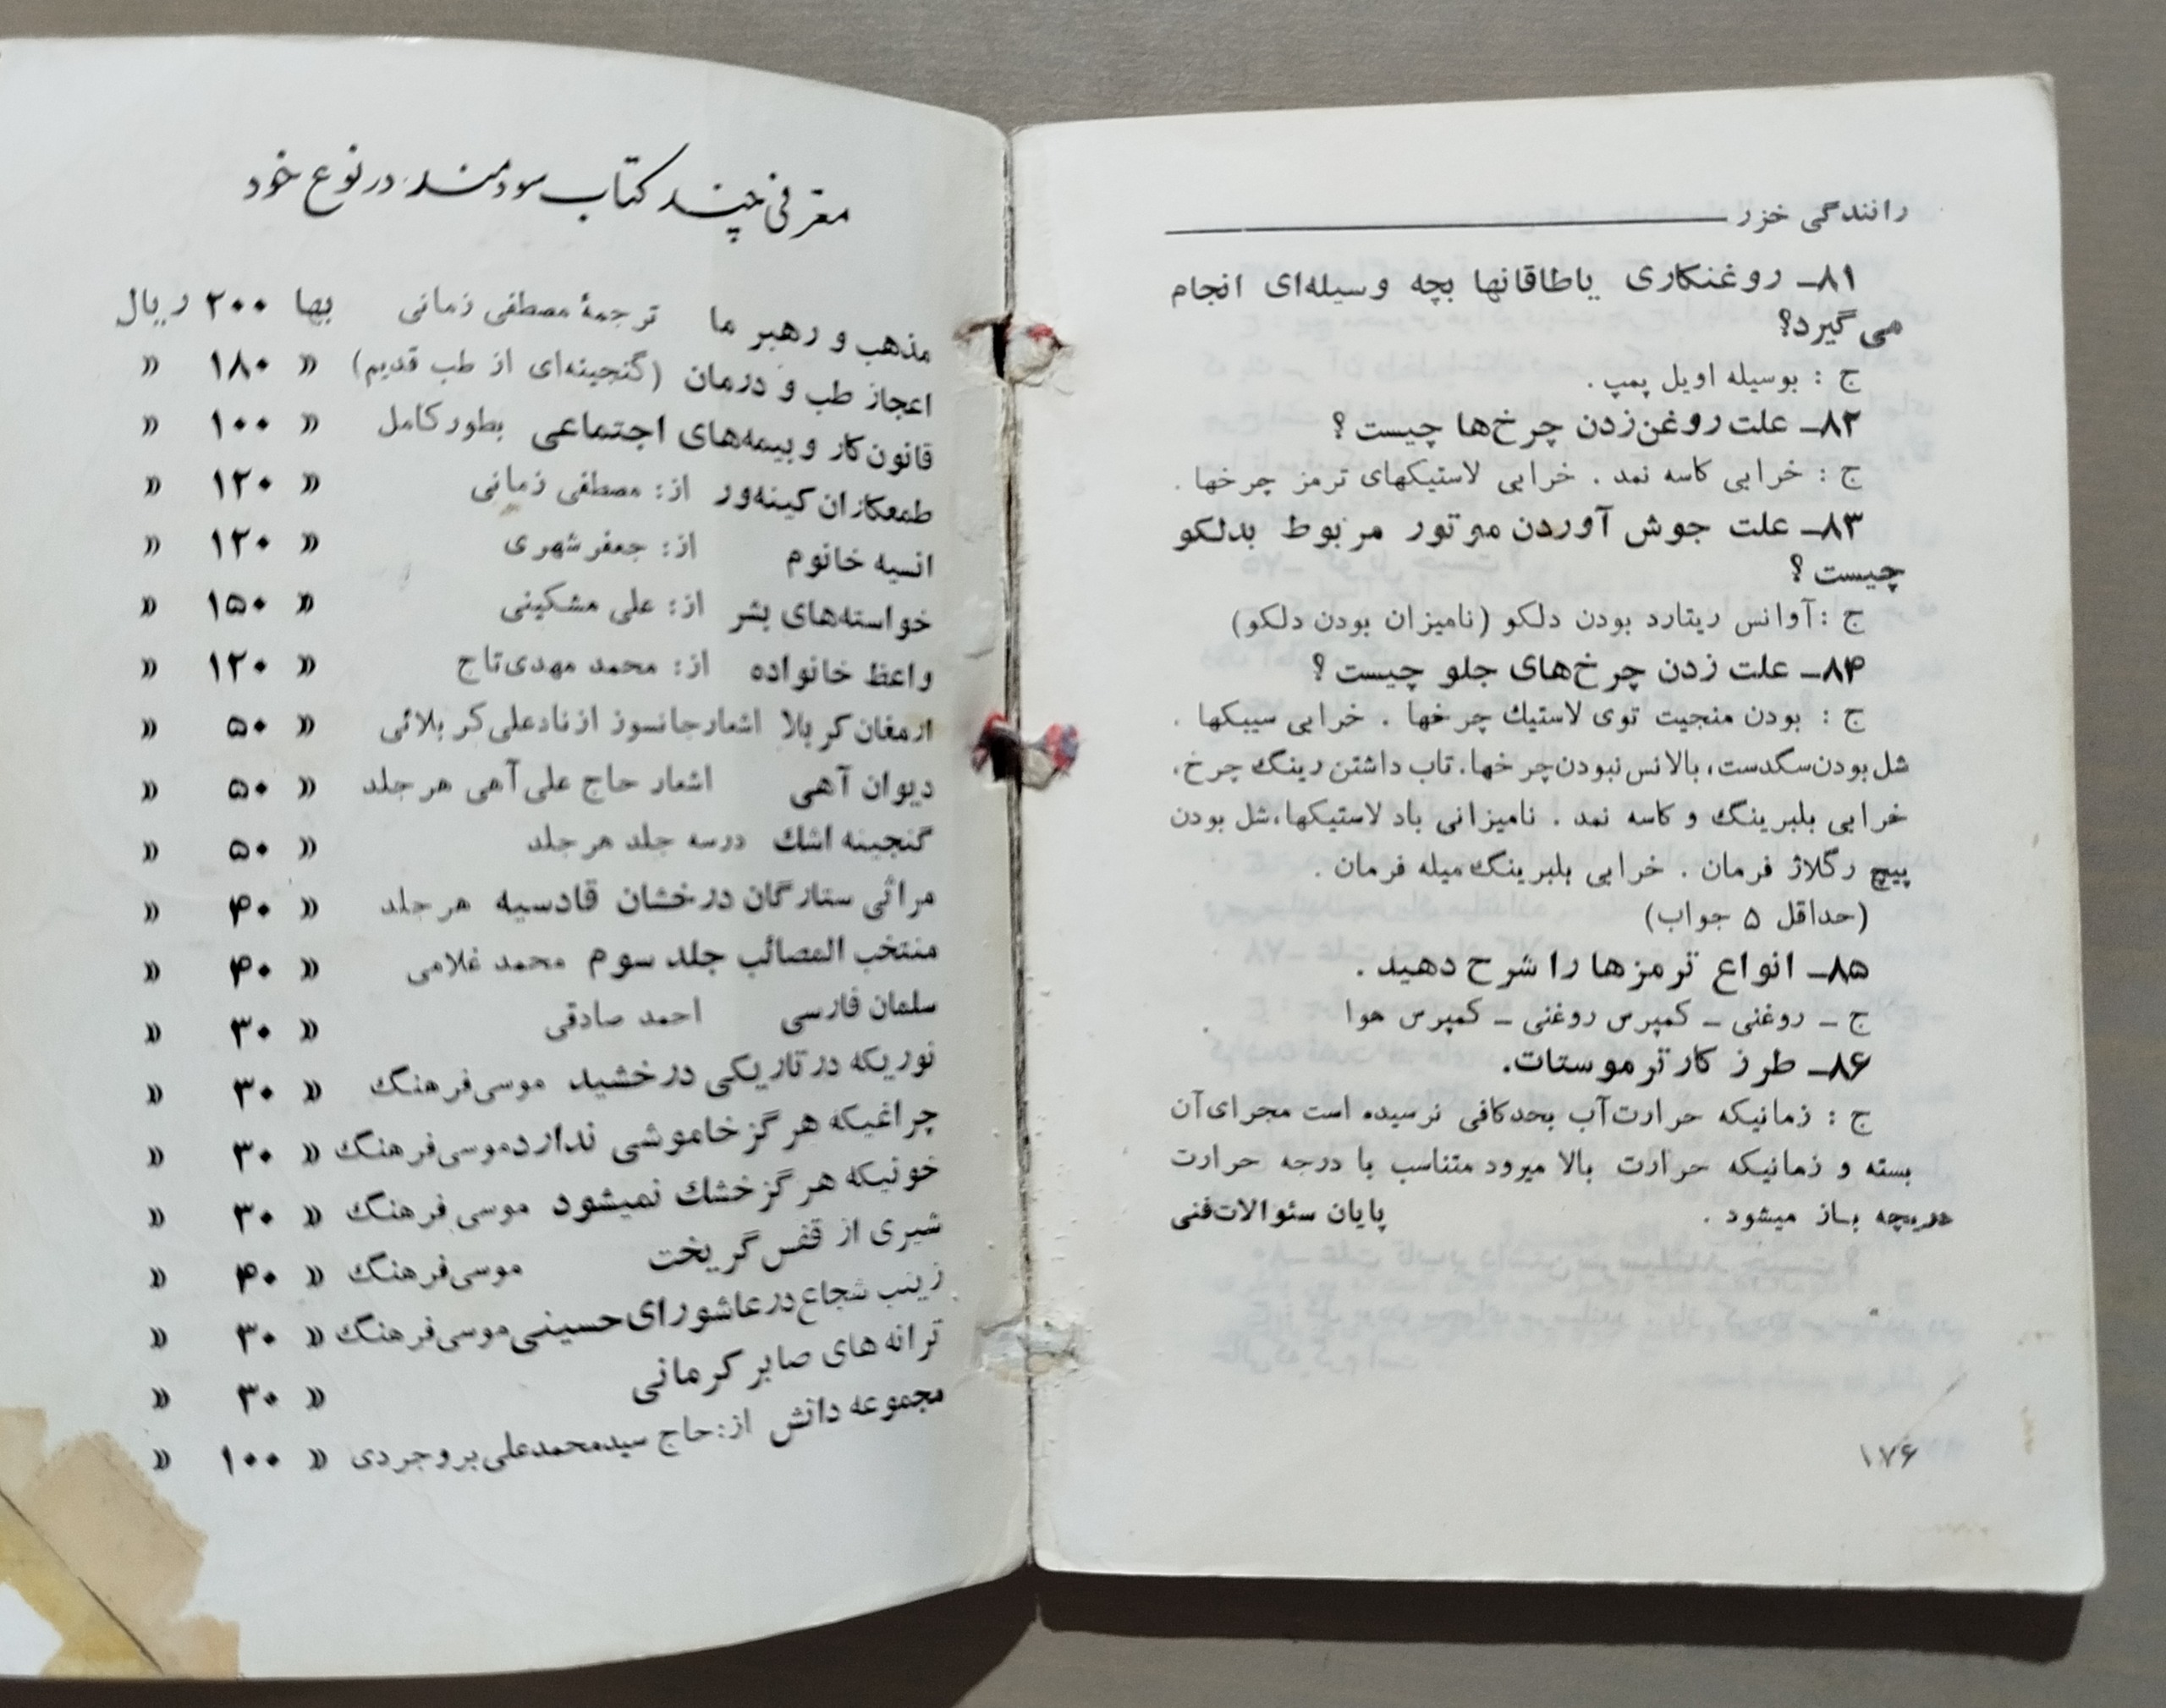 رانندگی خزر
۸۱ــ روغنکاری یاطاقانها بچه وسیله‌ای انجام
می‌گیرد؟
ج : بوسیله اویل پمپ .
۸۲ــ علت روغن‌زدن چرخ‌ها چیست ؟
ج : خرابی کاسه نمد . خرابی لاستیکهای ترمز چرخها .
۸۳ــ علت جوش آوردن موتور مربوط بدلکو
چیست ؟
ج : آوانس ریتارد بودن دلکو (نامیزان بودن دلکو)
۸۴ــ علت زدن چرخ‌های جلو چیست ؟
ج : بودن منجیت توی لاستیك چرخها . خرابی سیبکها .
شل بودن سگدست، بالانس نبودن چرخها. تاب داشتن رینگ چرخ.
خرابی بلبرینگ و کاسه نمد . نامیزانی باد لاستیکها، شل بودن
پیچ رگلاژ فرمان . خرابی بلبرینگ میله فرمان .
(حداقل ۵ جواب)
۸۵ــ انواع ترمزها را شرح دهید .
ج ــ روغنی ــ کمپرس روغنی ــ کمپرس هوا
۸۶ــ طرز کار ترموستات.
ج : زمانیکه حرارت‌آب بحدکافی نرسیده است مجرای‌آن
بسته و زمانیکه حرارت بالا میرود متناسب با درجه حرارت
دریچه باز میشود . پایان سئوالات‌فنی
۱۷۶
معرفی چند کتاب سودمند در نوع خود
مذهب و رهبر ما ترجمهٔ مصطفی زمانی بها ۲۰۰ ریال
اعجاز طب و درمان (گنجینه‌ای از طب قدیم) » ۱۸۰ »
قانون‌کار و بیمه‌های اجتماعی بطورکامل » ۱۰۰ »
طمعکاران کینه‌ور از: مصطفی زمانی » ۱۲۰ »
انسیه خانوم از: جعفر شهری » ۱۲۰ »
خواسته‌های بشر از: علی مشکینی » ۱۵۰ »
واعظ خانواده از: محمد مهدی‌تاج » ۱۲۰ »
ارمغان کربلا اشعار جانسوز از نادعلی کربلائی » ۵۰ »
دیوان آهی اشعار حاج علی آهی هر جلد » ۵۰ »
گنجینه اشك درسه جلد هر جلد » ۵۰ »
مراثی ستارگان درخشان قادسیه هر جلد » ۴۰ »
منتخب المصائب جلد سوم محمد غلامی » ۴۰ »
سلمان فارسی احمد صادقی » ۳۰ »
نوریکه در تاریکی درخشید موسی فرهنگ » ۳۰ »
چراغیکه هرگز خاموشی ندارد موسی فرهنگ » ۳۰ »
خونیکه هرگز خشك نمیشود موسی فرهنگ » ۳۰ »
شیری از قفس گریخت موسی فرهنگ » ۴۰ »
زینب شجاع در عاشورای حسینی موسی فرهنگ » ۳۰ »
ترانه های صابر کرمانی » ۳۰ »
مجموعه دانش از: حاج سیدمحمدعلی بروجردی » ۱۰۰ »